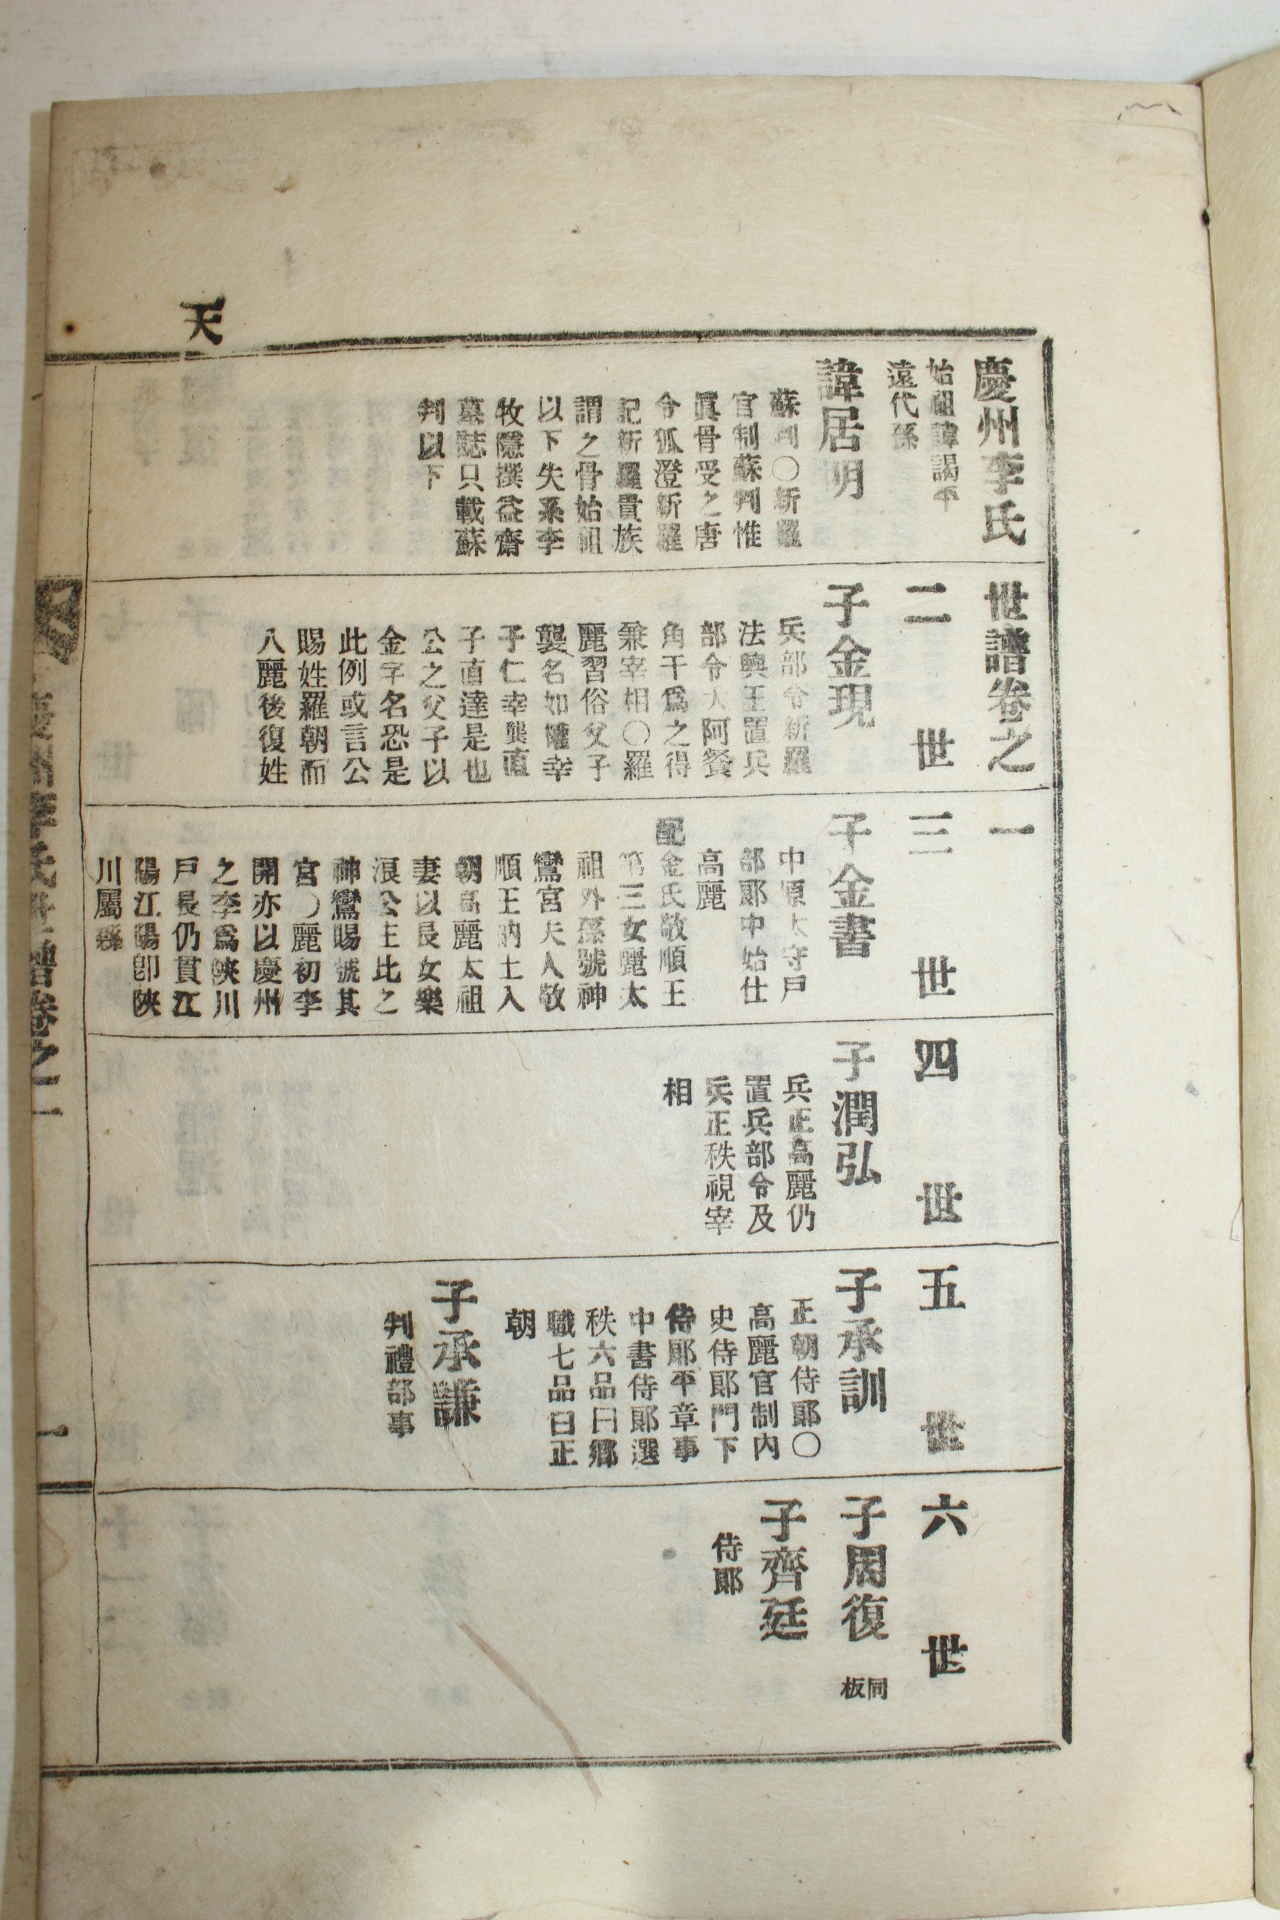 慶州李氏世譜卷之一
始祖諱謁平
遠代孫
諱居明
蘇判〇新羅
官制蘇判惟
眞骨受之唐
令狐澄新羅
記新羅貴族
謂之骨始祖
以下失系李
牧隱撰益齋
墓誌只載蘇
判以下
天
二世
子金現
兵部令新羅
法興王置兵
部令大阿餐
角干爲之得
兼宰相〇羅
麗習俗父子
襲名如膺幸
子仁幸龔直
子直達是也
公之父子以
金字名恐是
此例或言公
賜姓羅朝而
八麗後復姓
三世
子金書
中原太守戶
部郞中始仕
高麗
配金氏敬順王
第三女麗太
祖外孫號神
鸞宮夫人敬
順王納土入
朝高麗太祖
妻以長女樂
浪公主比之
神鸞賜號其
宮〇麗初李
開亦以慶州
之李爲陜川
戶長仍貫江
陽江陽卽陜
川屬縣
四世
子潤弘
兵正高麗仍
置兵部令及
兵正秩視宰
相
五世
子承訓
正朝侍郞〇
高麗官制內
史侍郞門下
侍郞平章事
中書侍郞選
秩六品曰鄕
職七品曰正
朝
子承謙
判禮部事
六世
子周復 同板
子齊廷
侍郞
慶州李氏世譜卷之一
一